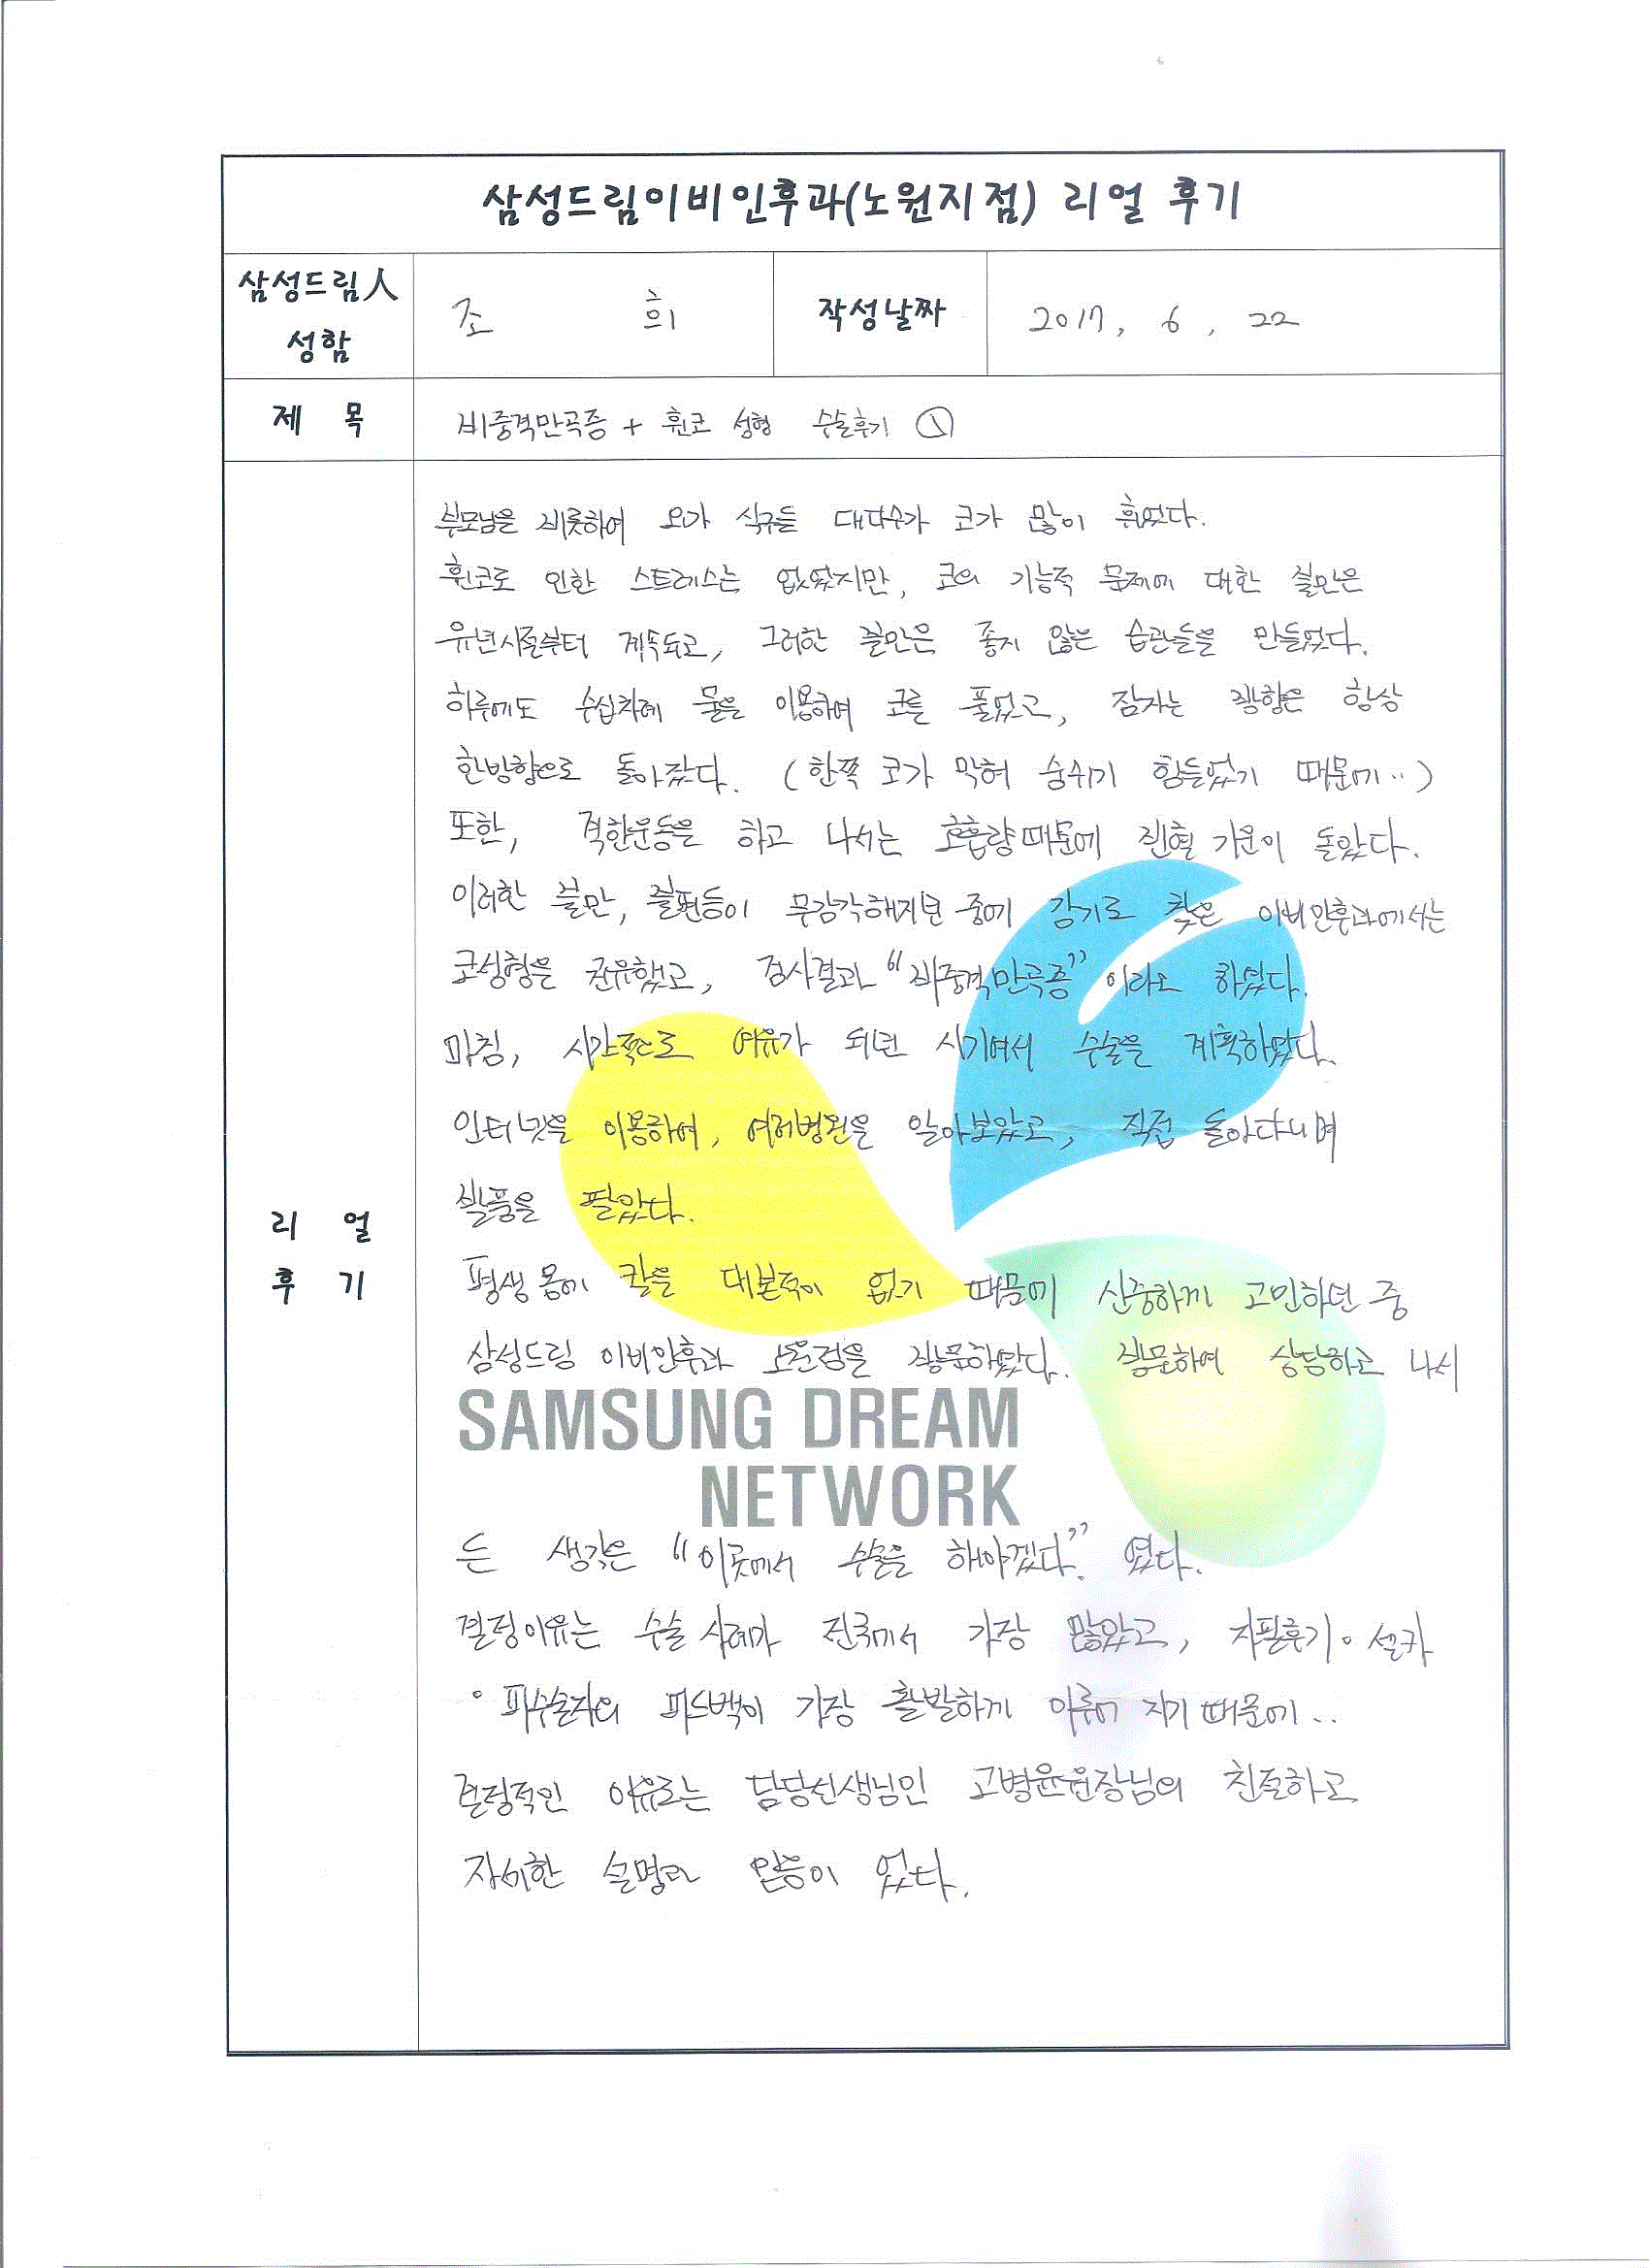 삼성드림이비인후과(노원지점) 리얼 후기
삼성드림人
성함
조 희
작성날짜
2017. 6. 22
제 목
비중격만곡증 + 휜코 성형 수술후기 ①
리 얼
후 기
부모님을 비롯하여 외가 식구들 대다수가 코가 많이 휘었다.
휜코로 인한 스트레스는 없었지만, 코의 기능적 문제에 대한 불만은
유년시절부터 계속되고, 그러한 불만은 좋지 않은 습관들을 만들었다.
하루에도 수십차례 물을 이용하여 코를 풀었고, 잠자는 방향은 항상
한방향으로 돌아잤다. (한쪽 코가 막혀 숨쉬기 힘들었기 때문에..)
또한, 격한운동을 하고 나서는 호흡량때문에 빈혈 기운이 돌았다.
이러한 불만, 불편등이 무감각해지던 중에 감기로 찾은 이비인후과에서는
코성형을 권유했고, 검사결과 "비중격만곡증" 이라고 하였다.
마침, 시간적으로 여유가 되던 시기여서 수술을 계획하였다.
인터넷을 이용하여, 여러병원을 알아보았고, 직접 돌아다니며
발품을 팔았다.
평생 몸에 칼을 대본적이 없기 때문에 신중하게 고민하던 중
삼성드림 이비인후과 노원점을 방문하였다. 방문하여 상담하고 나서
SAMSUNG DREAM
NETWORK
든 생각은 "이곳에서 수술을 해야겠다." 였다.
결정이유는 수술 사례가 전국에서 가장 많았고, 자필후기 · 셀카
· 피수술자의 피드백이 가장 활발하게 이루어 지기 때문에..
결정적인 이유로는 담당선생님인 고병윤원장님의 친절하고
자세한 설명과 믿음이 었다.